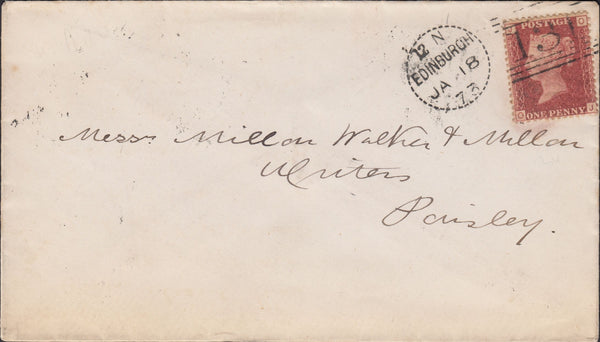 POSTAGE
131
O
ONE PENNY
O J
12 N
EDINBURGH
JA 18
73
Messrs Millon Walker & Millon
Writers
Paisley.